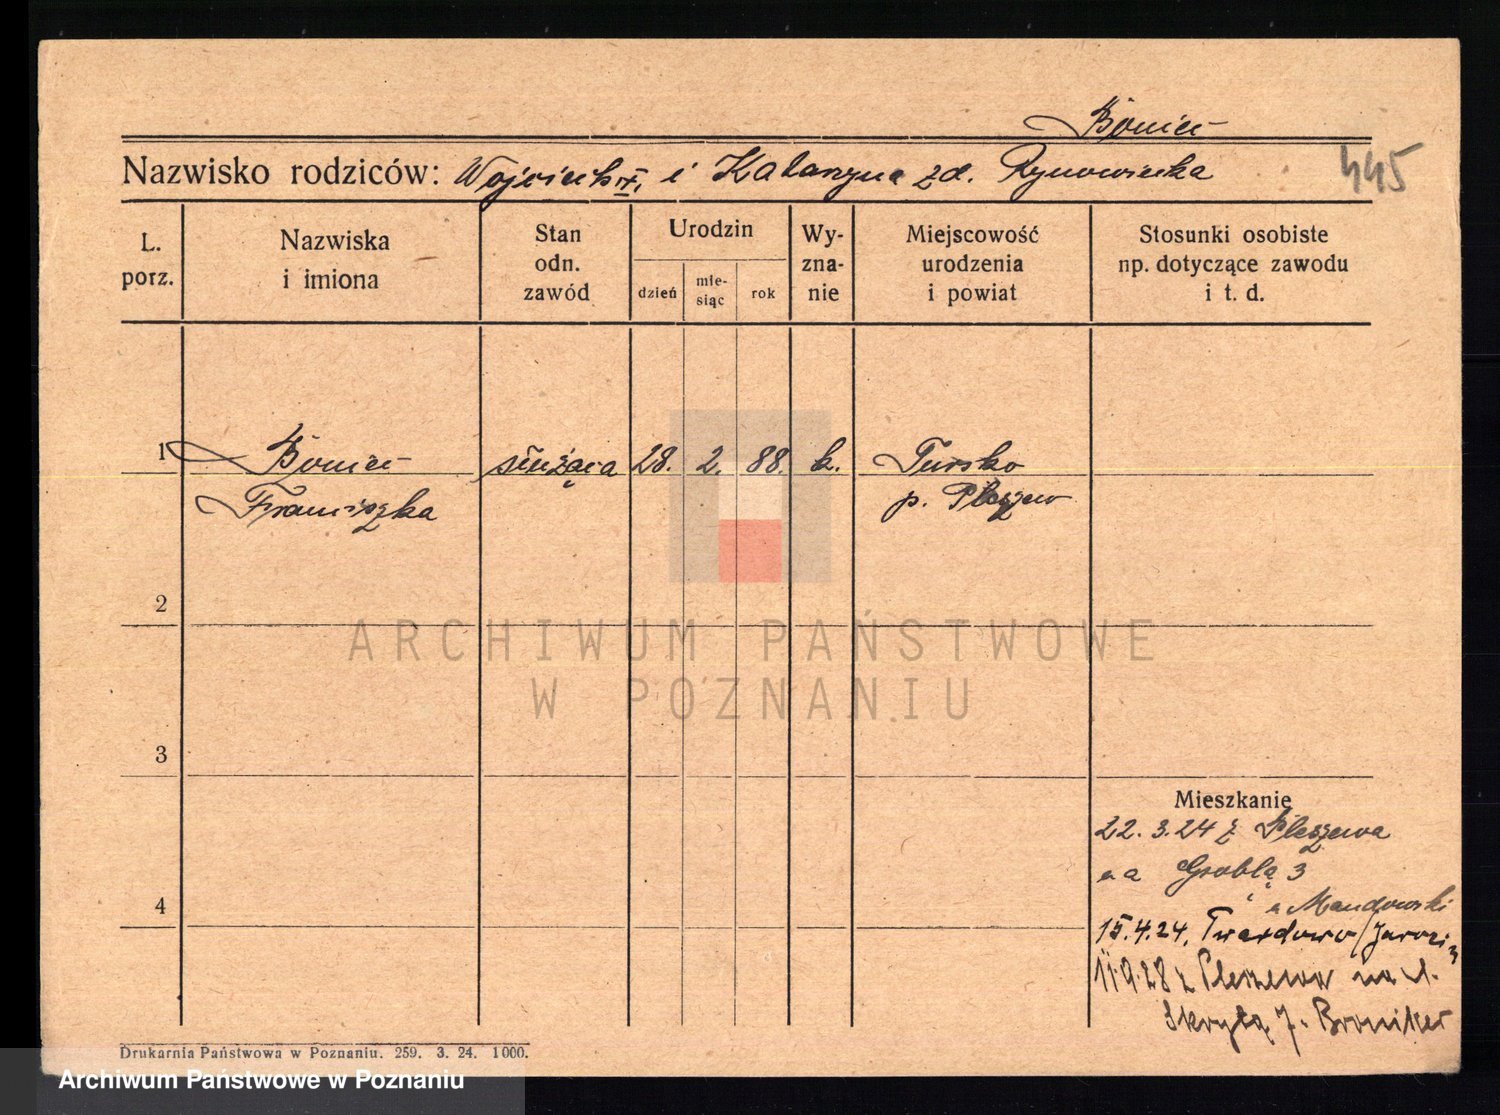 Boniec
Nazwisko rodziców: Wojciech i Katarzyna zd. Rynowiecka
445
L. porz.
Nazwiska i imiona
Stan odn. zawód
Urodzin
dzień
mie- siąc
rok
Wy- zna- nie
Miejscowość urodzenia i powiat
Stosunki osobiste np. dotyczące zawodu i t. d.
1 Boniec służąca 28. 2. 88. k. Tursko
Franciszka p. Pleszew
2
ARCHIWUM PAŃSTWOWE
W POZNANIU
3
Mieszkanie
22. 3. 24 z Pleszewa
na Groblą 3
4
u Mandowski
15. 4. 24. Twardowo/Jarocin
11. 9. 28 z Pleszewa na ul.
Skrytą 7.
Drukarnia Państwowa w Poznaniu. 259. 3. 24. 1000.
Archiwum Państwowe w Poznaniu